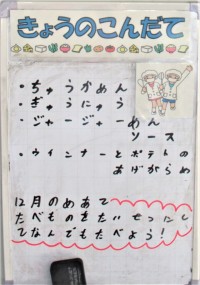 きょうのこんだて
・ちゅうかめん
・ぎゅうにゅう
・ジャージャーめん
ソース
・ウインナーとポテトの
あげがらめ
12月のめあて
たべものをたいせつにし
てなんでもたべよう！